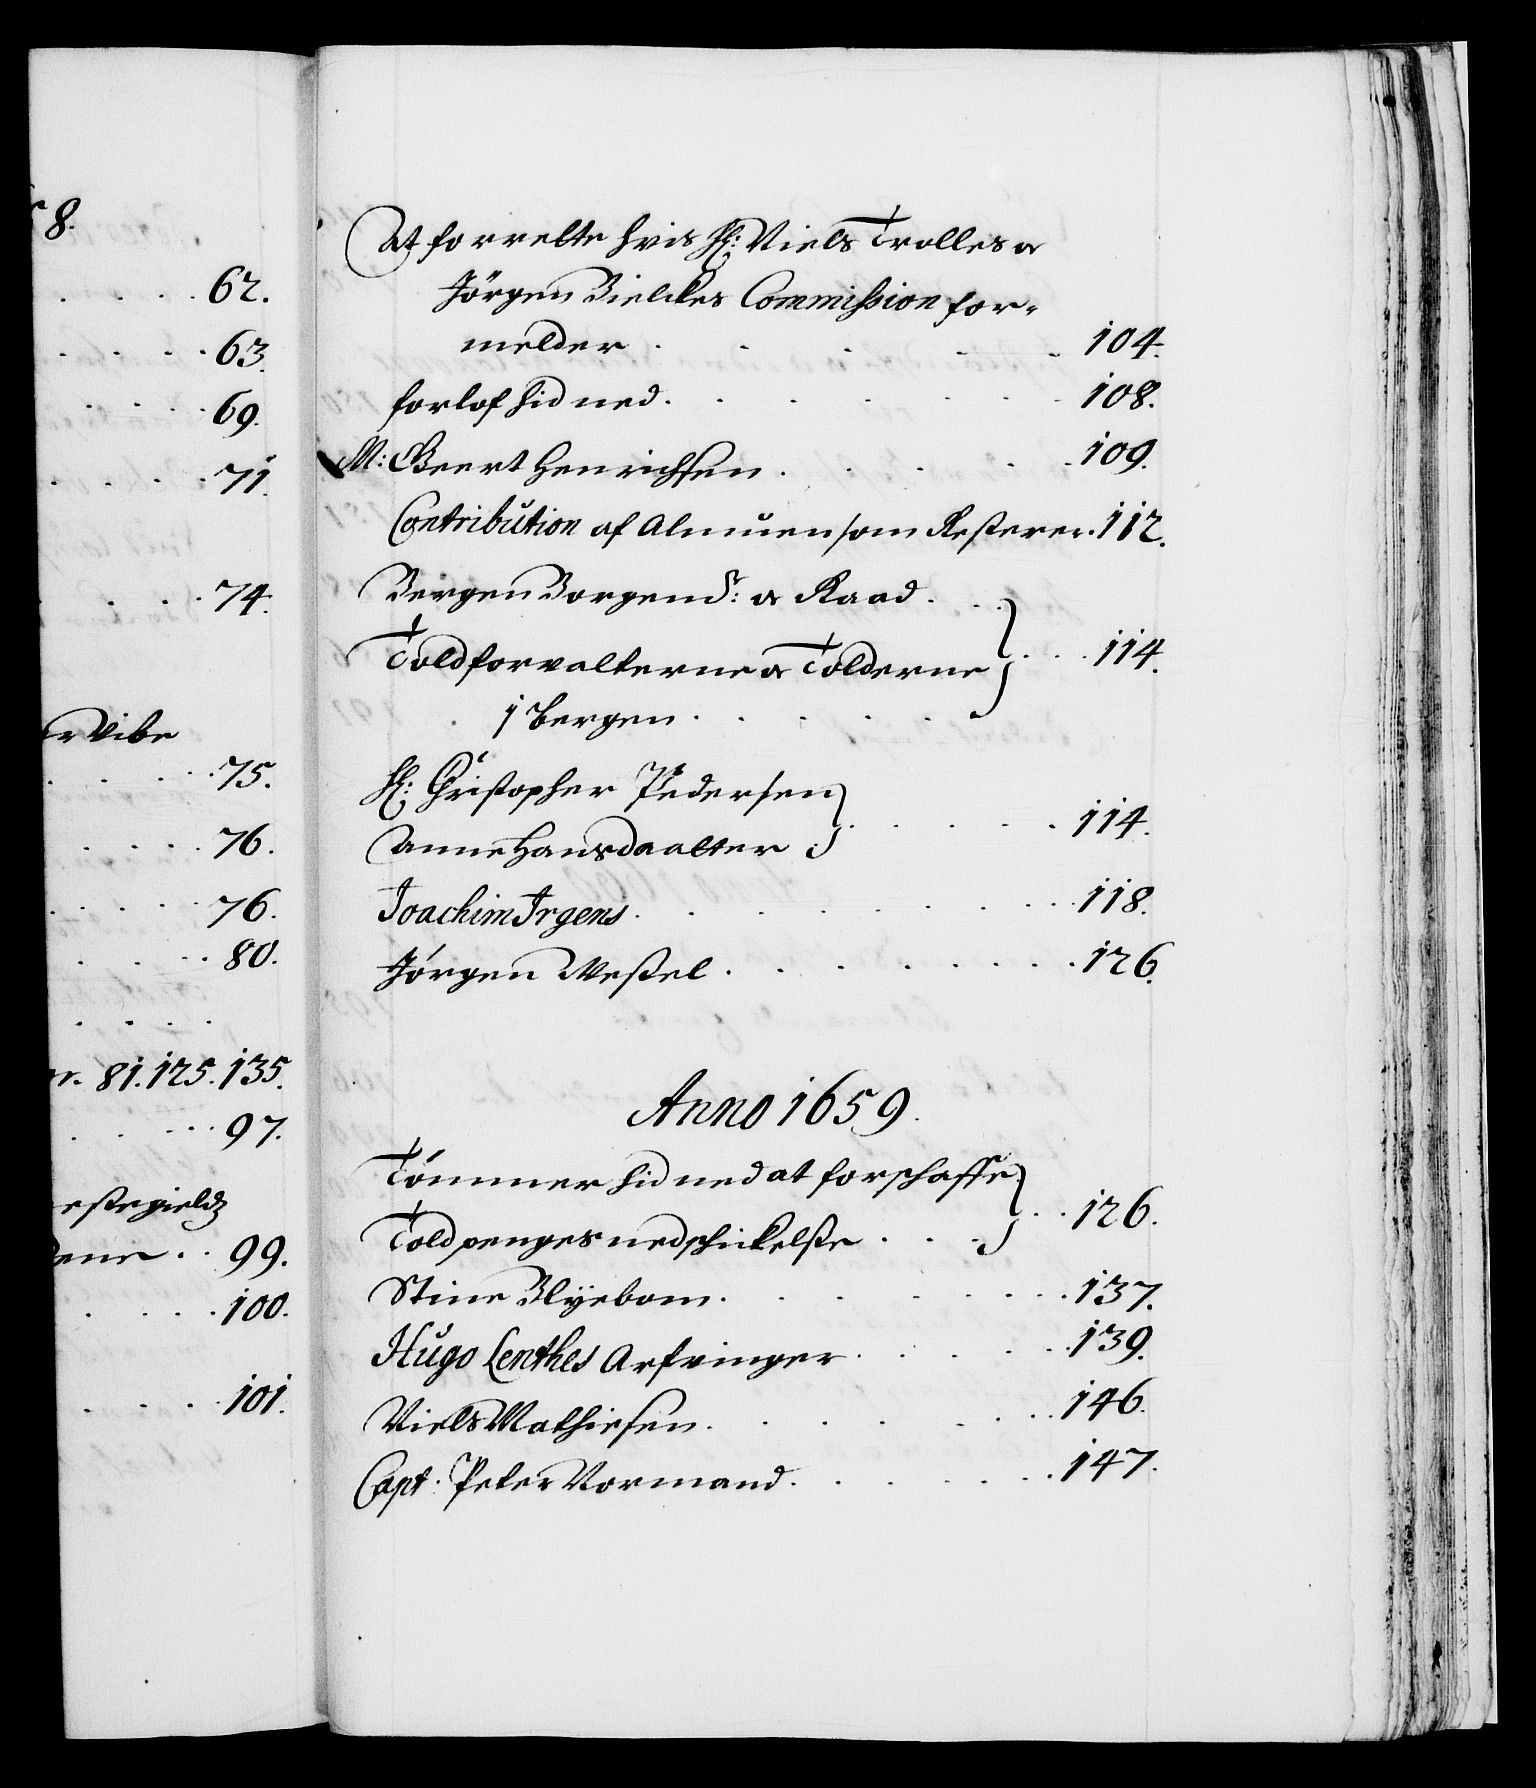 58.
62.
63.
69.
71.
74.
Vibe
75.
76.
76.
80.
81. 125. 135.
97.
99.
100.
101.
At forrette hvis H: Niels Trolles oc
Jörgen Bielckes Commission for-
melder 104.
forlof hid ned. 108.
M: Geert Henrichsen. 109.
Contribution af Almuen som Resterer. 112.
Bergen Borgem: oc Raad.
Toldforvalterne oc Tolderne
i Bergen. 114.
H: Christopher Pedersen
Anne Hansdaatter 114.
Joachim Irgens. 118.
Jörgen Wessel. 126.
Anno 1659.
Tömmer hid ned at forschaffe
Toldpenges nedschickelse 126.
Stine Blyebom. 137.
Hugo Lenthes Arfvinger. 139.
Niels Mathiesen. 146.
Capt: Peter Normand. 147.